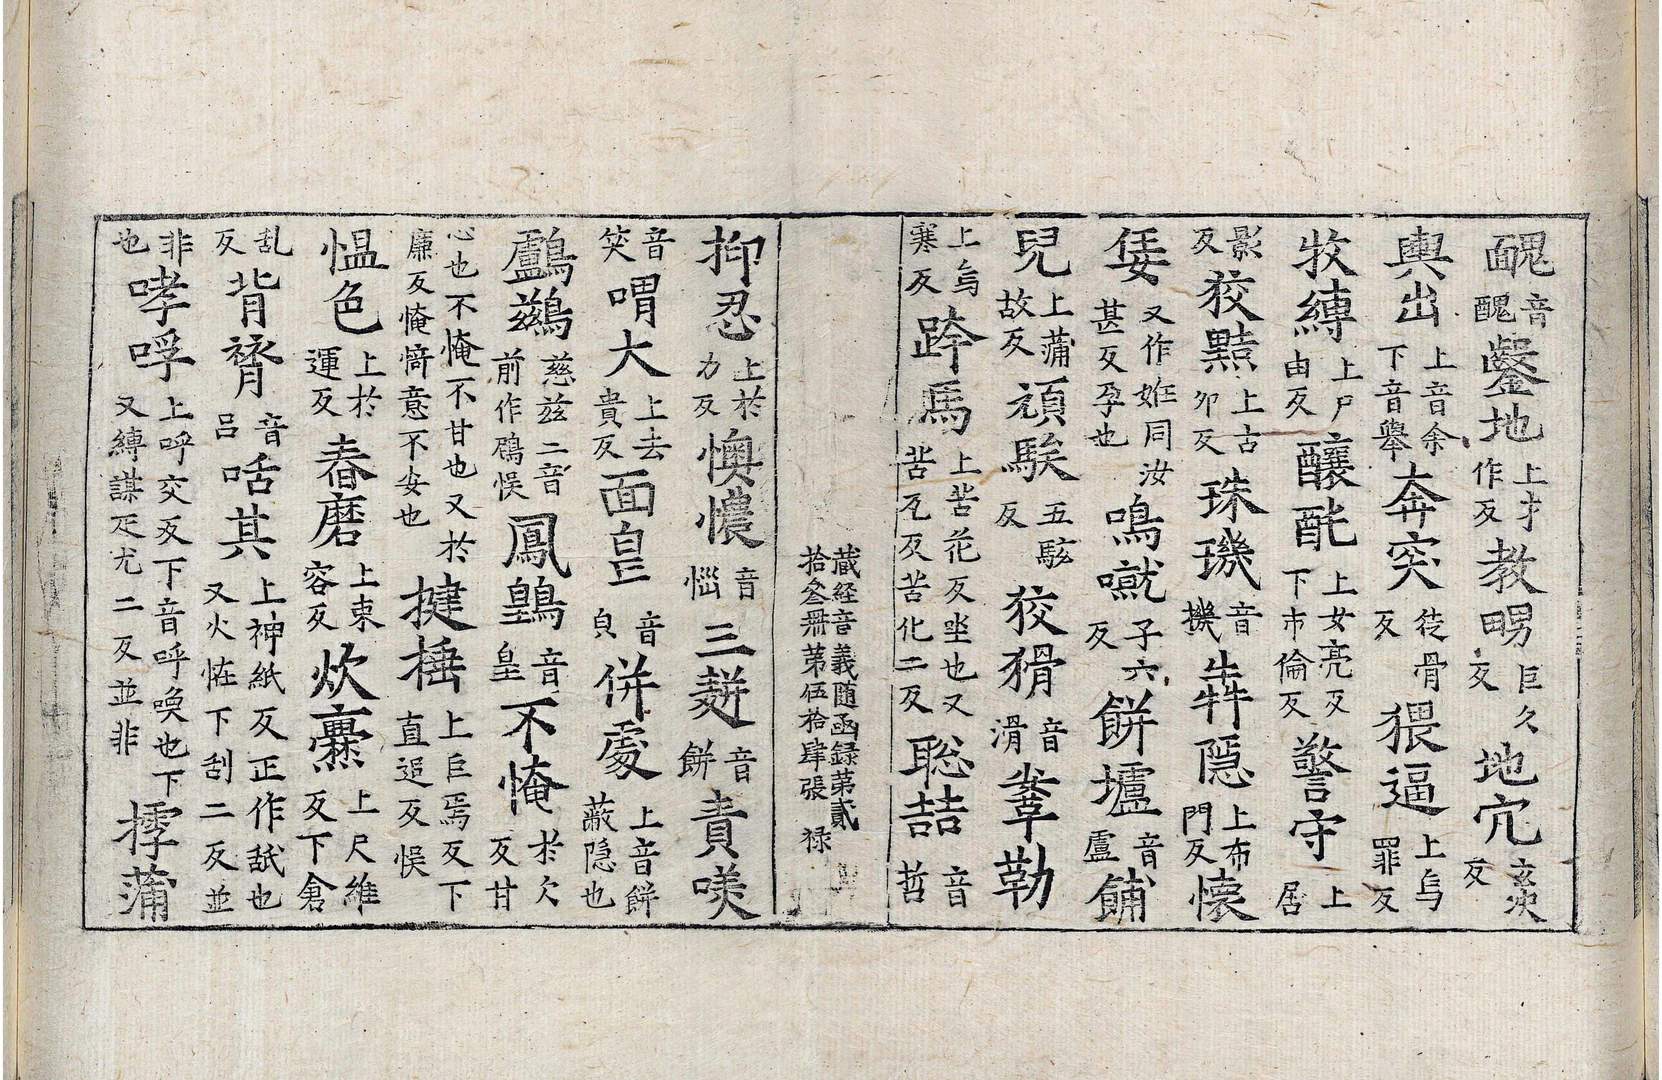 醜音醜鑿地上才作反教甥巨久反地穴玄决反
輿出上音余下音轝奔突徒骨反猥逼上烏罪反
牧縛上尸由反釀酕上女亮反下市倫反警守上居
影反狡黠上古卯反珠璣音機犇隱上布門反懷
㑗又作妊同汝甚反孕也鳴噈子六反餅壚音盧餔
皃上蒲故反頑騃五駭反狡猾音滑鞌勒
上烏寒反跨馬上苦花反坐也又苦瓦反苦化二反聡喆音哲
藏経音義随函録第貳
拾叄冊第伍拾肆張 禄
抑忍上於力反懊憹音惱三䴵音餅責𡁠
音笑喟大上去貴反面皀音皃併處上音餅蔽隐也
鸕鷀慈兹二音前作鶿悮鳳鷍音皇不㤿於欠反甘
心也不㤿不甘也又於廉反㤿㥓意不安也揵搥上巨焉反下直追反悮
愠色上於運反舂磨上束容反炊爨上尺維反下倉
乱反背膂音吕咶其上神紙反正作舐也又火怪下刮二反並
非也哮呼上呼交反下音呼喚也下又縛謀疋尤二反並非摴蒲